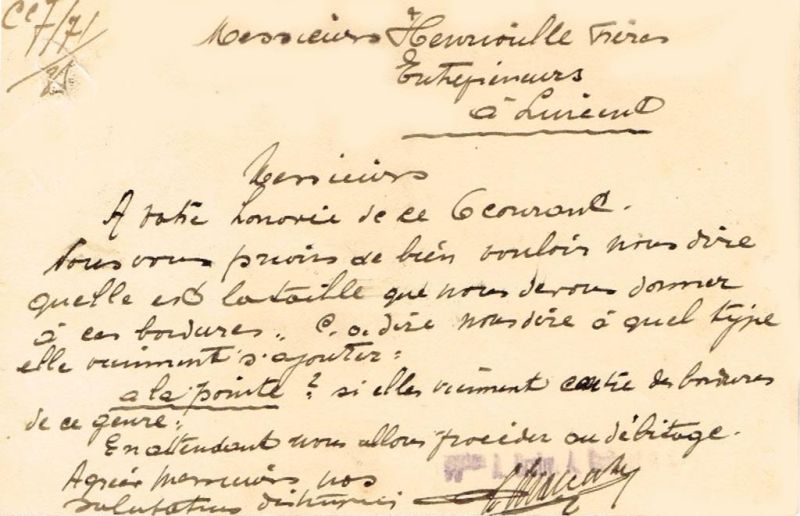 Ce 7/7/
Messieurs Henrioulle Frères
Entrepreneurs
à
Messieurs
A votre honorée de ce 6 courant.
Nous vous prions de bien vouloir nous dire
quelle est la taille que nous devons donner
à ces bordures. C. a. dire nous dire à quel type
elle viennent s'ajouter:
a la pointe ? si elles viennent contre des bordures
de ce genre.
En attendant nous allons procéder au débitage.
Agréer Messieurs, nos
salutations distinguées